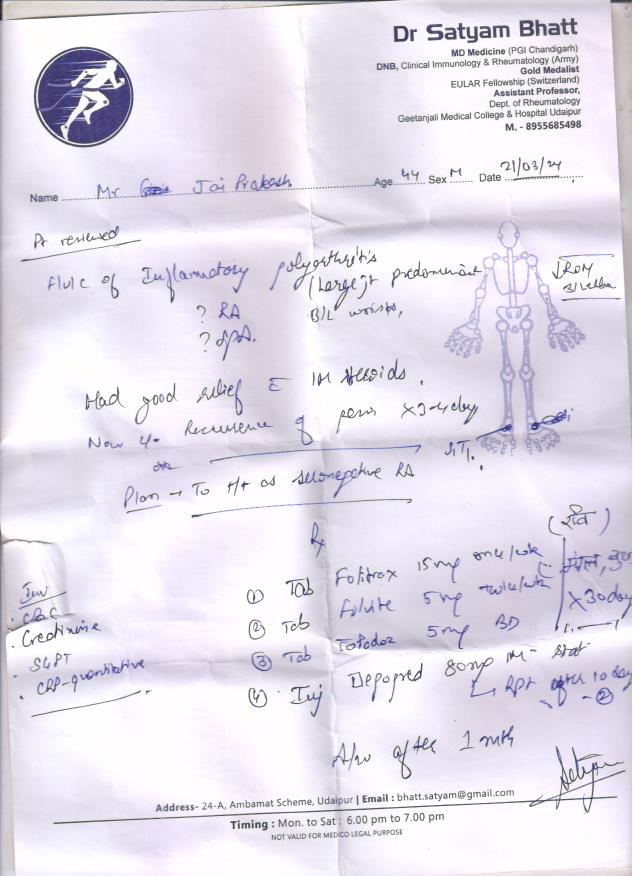 Dr Satyam Bhatt
MD Medicine (PGI Chandigarh)
DNB, Clinical Immunology & Rheumatology (Army)
Gold Medalist
EULAR Fellowship (Switzerland)
Assistant Professor,
Dept. of Rheumatology
Geetanjali Medical College & Hospital Udaipur
M. - 8955685498
Name Mr Jai Prakash Age 44 Sex M Date 21/03/24
Pt reviewed
of Inflammatory polyarthritis
(Large jt predominant
? RA B/L wrists,
? SpA.
↓ROM
B/L elbow
Had good relief c̄ IM steroids.
Now c/o Recurrence of pain x 3-4 day
Plan → To t/t as seronegative RA
Rx
(रवि)
Inv
· CBC
· Creatinine
· SGPT
· CRP-quantitative
① Tab Folitrax 15mg once/wk
② Tab Folvite 5mg twice/wk (मंगल, बुध
③ Tab 5mg BD x 30 day
④ Inj Depopred 80mg IM - stat
↳ Rpt after 10 day
- ②
R/w after 1 mth
Address- 24-A, Ambamat Scheme, Udaipur | Email : bhatt.satyam@gmail.com
Timing : Mon. to Sat : 6.00 pm to 7.00 pm
NOT VALID FOR MEDICO LEGAL PURPOSE